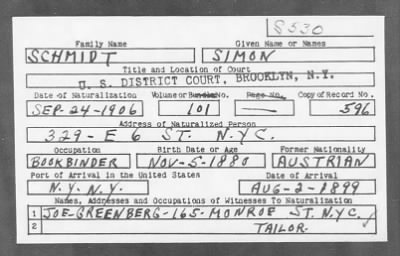 S530
Family Name Given Name or Names
SCHMIDT SIMON
Title and Location of Court
U. S. DISTRICT COURT, BROOKLYN, N.Y.
Date of Naturalization Volume or Bundle No. Page No. Copy of Record No.
SEP-24-1906 101 596
Address of Naturalized Person
329-E 6 ST. N.Y.C.
Occupation Birth Date or Age Former Nationality
BOOKBINDER NOV-5-1880 AUSTRIAN
Port of Arrival in the United States Date of Arrival
N.Y. N.Y. AUG-2-1899
Names, Addresses and Occupations of Witnesses To Naturalization
1 JOE-GREENBERG-165-MONROE ST. N.Y.C.
2 TAILOR.